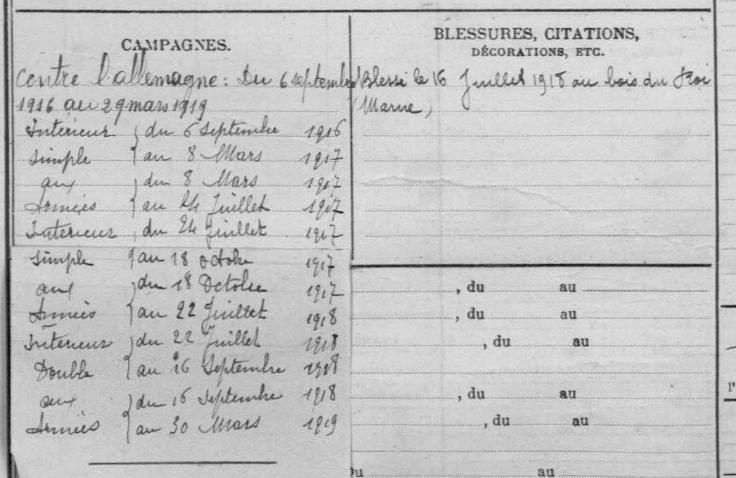 CAMPAGNES.
contre l'allemagne: Du 6 septembre
1916 au 29 mars 1919
Intérieur } du 6 Septembre 1916
simple } au 8 Mars 1917
aux } du 8 Mars 1917
Armées } au 24 Juillet 1917
Intérieur } du 24 Juillet 1917
simple } au 18 octobre 1917
aux } du 18 Octobre 1917
Armées } au 22 Juillet 1918
Intérieur } du 22 Juillet 1918
Double } au 16 Septembre 1918
aux } du 16 Septembre 1918
Armées } au 30 Mars 1919
BLESSURES, CITATIONS,
DÉCORATIONS, ETC.
Blessé le 16 Juillet 1918 au bois du Roi
(Marne)
, du au
, du au
, du au
, du au
, du au
du au